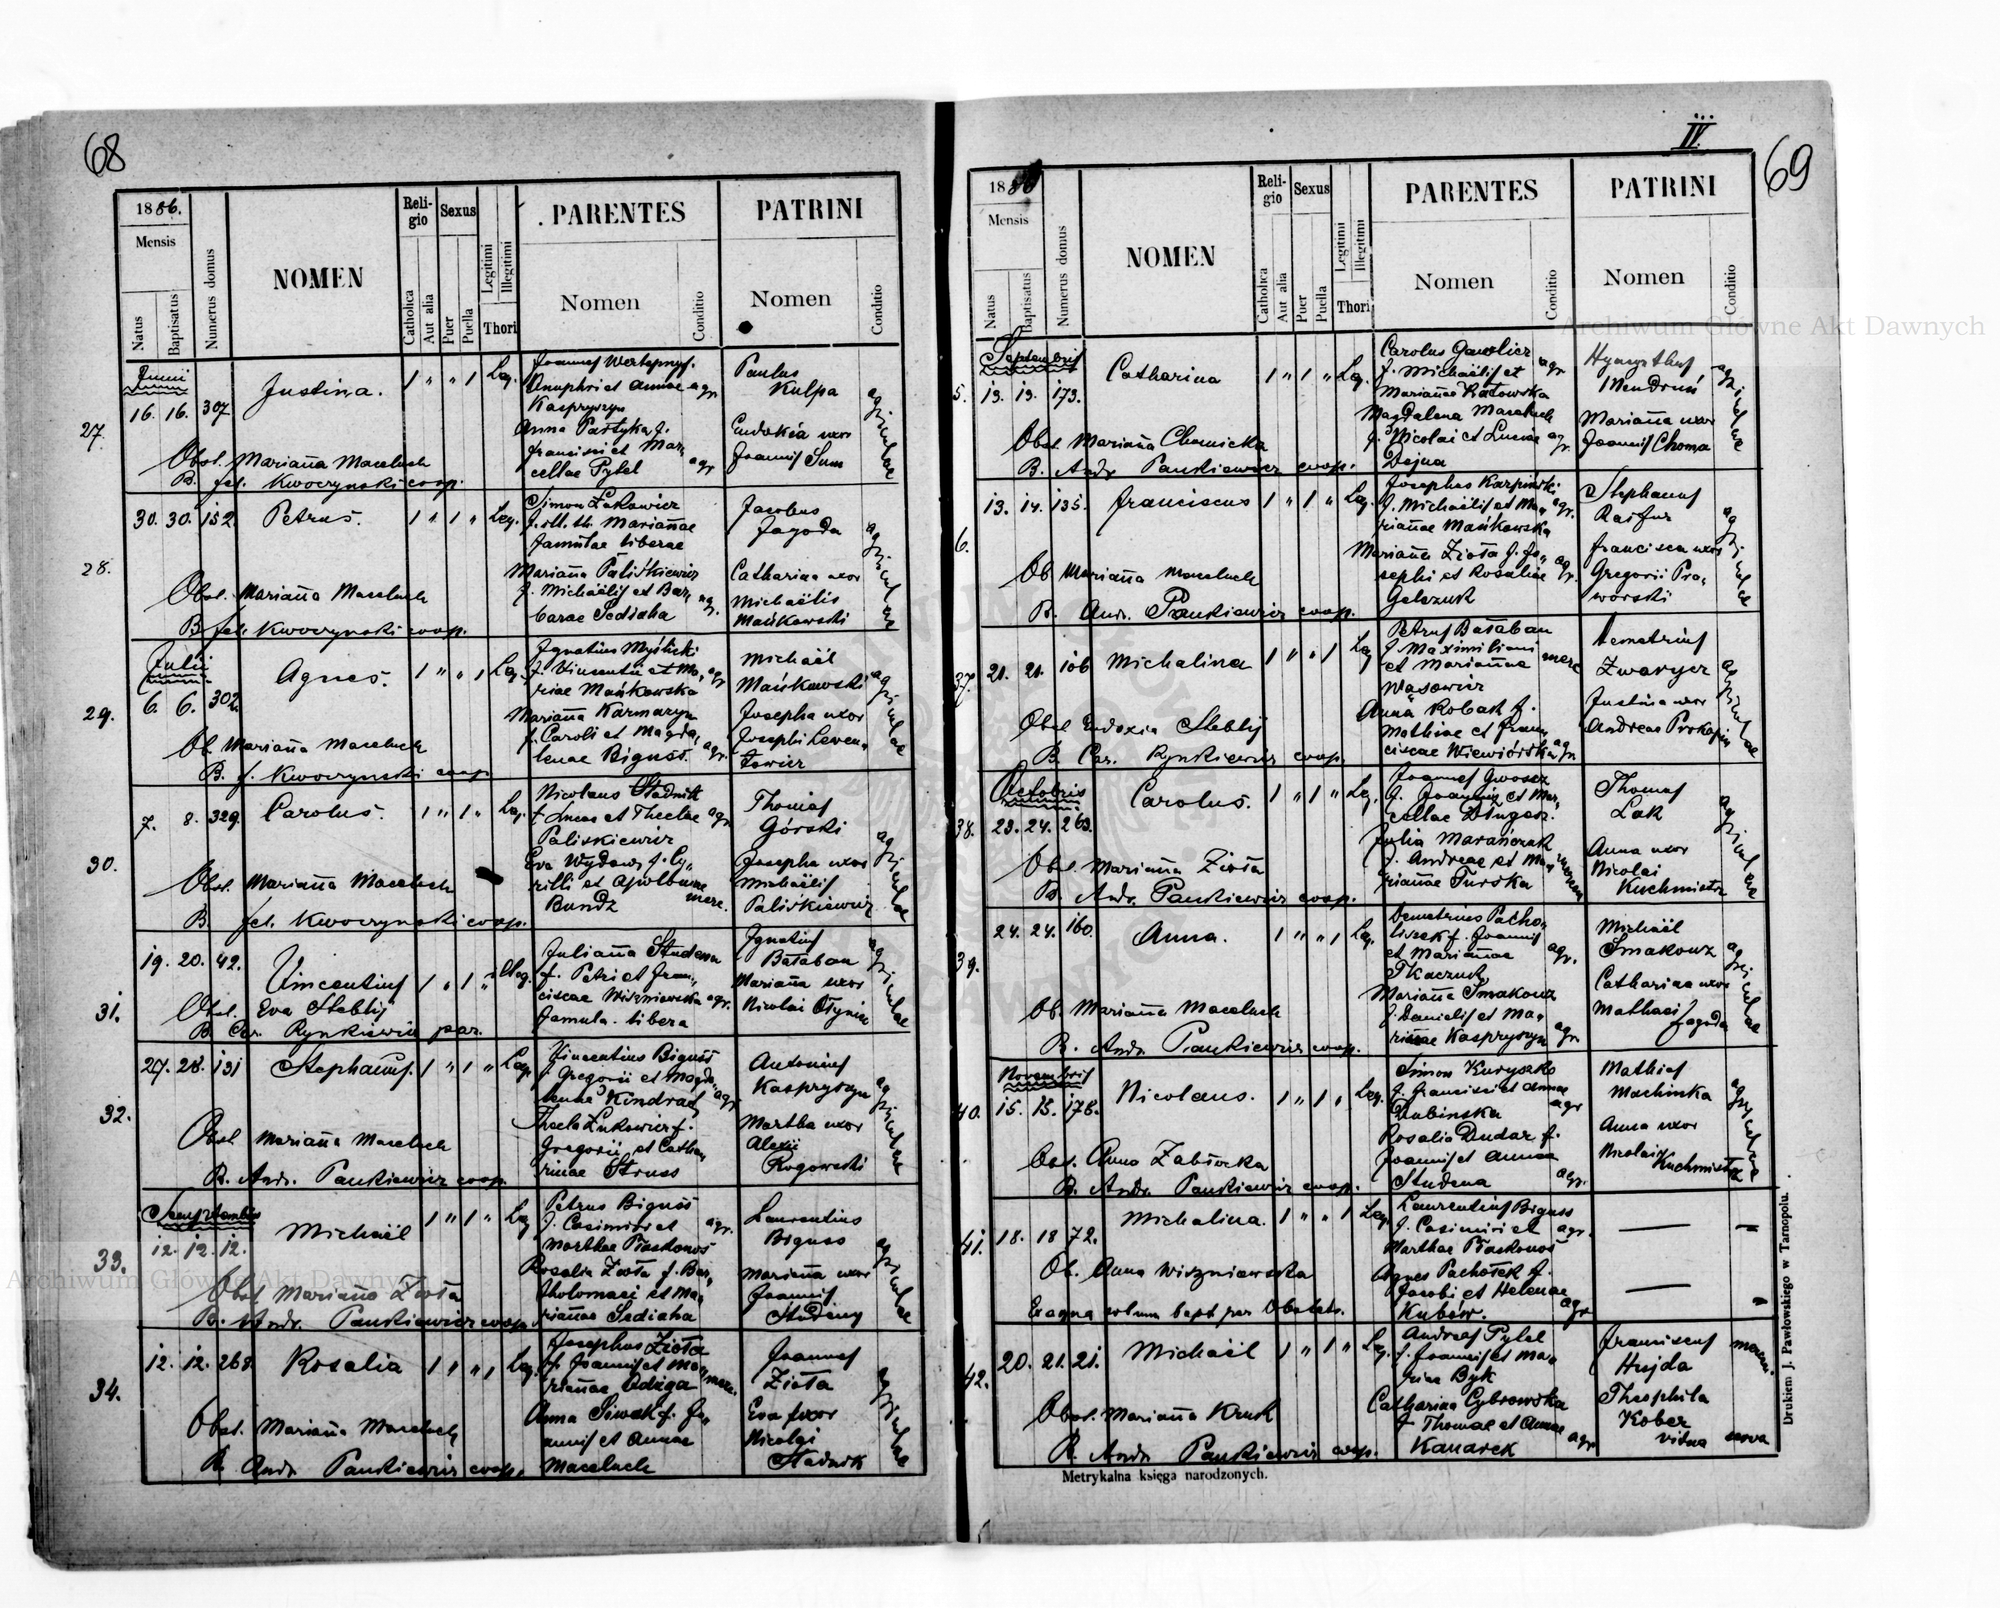 68
1886.
Mensis
Natus
Baptisatus
Numerus domus
NOMEN
Religio
Catholica
Aut alia
Sexus
Puer
Puella
Legitimi
Illegitimi
Thori
PARENTES
Nomen
Conditio
PATRINI
Nomen
Conditio
27.
Junii
16. 16. 307
Justina.
1 " " 1 Leg.
Obst. Marianna Maceluch
B. fel. Kwoczynski coop.
Joannes
Onuphri et Annae agr.
Kaspryszyn
Anna Partyka f.
francisci et Mar,
cellae Pytel agr
Paulus
Kulpa
Eudokia uxor
Joannis Sum
agricolae
28.
30. 30. 152. Petrus.
1 " 1 " Leg.
Obst. Marianna Maceluch
B fel. Kwoczynski coop.
Simon Łukowicz
f. ill. th. Mariannae
famulae liberae
Marianna Paliskiewicz
f. Michaëlis et Bar,
barae Sediaha
Jacobus
Jagoda
Catharina uxor
Michaëlis
Mańkowski
agricolae
29.
Julii
6. 6. 302.
Agnes.
1 " " 1 Leg.
Ob. Marianna Maceluch
B. f. Kwoczynski coop
Ignatius Myślicki
f. Vincentii et Ma, agr
riae Mańkowska
Marianna Karmazyn
f. Caroli et Magda,
lenae Biguss. agr.
Michaël
Mańkowski
Josepha uxor
Josephi Lewen,
towicz
agricolae
30.
7. 8. 329. Carolus.
1 " 1 " Leg.
Obst. Marianna Maceluch
B. fel. Kwoczynski coop.
Nicolaus Stadnik
f. Lucae et Theclae agr
Paliskiewicz
Eva Wydaw, f. Cy,
rilli et Apolloniae
Bundz merc.
Thomas
Górski
Josepha uxor
Michaëlis
Paliskiewicz
agricolae
31.
19. 20. 42. Vincentius
1 " 1 " Illeg.
Obst. Eva Steblij
B Car. Rynkiewicz par.
Julianna Studena
f. Petri et fran,
ciscae Wiszniewska agr.
famula libera
Ignatius
Bałaban
Marianna uxor
Nicolai
agricolae
32.
27. 28. 131 Stephanus.
1 " 1 " Leg
Obst Marianna Maceluch
B. Andr. Pankiewicz coop.
Vincentius Biguss
f. Gregorii et Magda,
lenae Kindrat agr
Thecla Łukowicz f.
Gregorii et Catha,
rinae Struss
Antonius
Kaspryszyn
Martha uxor
Alexii
Rogowski
agricolae
33.
Septembris
12. 12. 12.
Michaël
1 " 1 " Leg
Obst Marianna Zioła
B. Andr. Pankiewicz coop.
Petrus Biguss
f. Casimiri et agr.
Marthae Płaskonos
Rosalia Zioła f. Bar,
tholomaei et Ma,
riannae Sediaha
Laurentius
Biguss
Marianna uxor
Joannis
Studeny
agricolae
34.
12. 12. 268. Rosalia
1 " " 1 Leg.
Obst. Marianna Maceluch
B. Andr. Pankiewicz coop.
Josephus Zioła
f. Joannis et Ma,
riannae Odziga merc.
Anna Siwak f. Jo,
annis et Annae
Maceluch
Joannes
Zioła
Eva uxor
Nicolai
Stadnik
agricolae
IV.
69
1886
Mensis
Natus
Baptisatus
Numerus domus
NOMEN
Religio
Catholica
Aut alia
Sexus
Puer
Puella
Legitimi
Illegitimi
Thori
PARENTES
Nomen
Conditio
PATRINI
Nomen
Conditio
5.
Septembris
13. 13. 173.
Catharina
1 " 1 " Leg.
Obst. Marianna Chomicka
B. Andr. Pankiewicz coop.
Carolus Gawlicz
f. Michaëlis et agr
Mariannae Kątowska
Magdalena Maceluch
f. Nicolai et Luciae agr.
Dejna
Hyacynthus
Mendrus
Marianna uxor
Joannis Choma
agricolae
6.
13. 14. 135. franciscus
1 " 1 " Leg.
Ob Marianna Maceluch
B. Andr. Pankiewicz coop.
Josephus Karpinski
f. Michaëlis et Ma, agr.
riannae Mańkowska
Marianna Zioła f. Jo,
sephi et Rosaliae agr.
Gelczuk
Stephanus
Raifur
francisca uxor
Gregorii Pra,
worski
agricolae
37.
21. 21. 106 Michalina
1 " " 1 Leg
Obst Eudoxia Steblij
B. Car. Rynkiewicz coop.
Petrus Bałaban
f. Maximiliani
et Mariannae merc
Wąsowicz
Anna Robak f.
Mathiae et fran,
ciscae Wiewiórska agr.
Demetrius
Zwarycz
Justina uxor
Andreae Prokopiw
agricolae
38.
Octobris
23. 24. 263.
Carolus.
1 " 1 " Leg.
Obst. Marianna Zioła
B. Andr. Pankiewicz coop.
Joannes Gwoszcz
f. Joannis et Mar,
cellae Długosz.
Julia Marańczak
f. Andreae et Ma,
riannae Turska
Thomas
Lak
Anna uxor
Nicolai
Kuchmistrz
agricolae
39.
24. 24. 160. Anna.
1 " " 1 Leg.
Ob. Marianna Maceluch
B. Andr. Pankiewicz coop.
Demetrius Pacho,
liszek f. Joannis
et Mariannae agr.
Tkaczuk
Marianna Smakouz
f. Danielis et Ma,
riannae Kaspryszyn agr.
Michaël
Smakouz
Catharina uxor
Mathaei
Jagoda
agricolae
40.
Novembris
15. 15. 178.
Nicolaus.
1 " 1 " Leg.
Obst. Anna Zabłocka
B. Andr. Pankiewicz coop.
Simon Kuryszko
f. francisci et Annae
Dubinska agr
Rosalia Dudar f.
Joannis et Annae
Studena agr.
Mathias
Machinka
Anna uxor
Nicolai
Kuchmistrz
agricolae
41.
18. 18 72. Michalina.
1 " " 1 Leg.
Ob. Anna Wiszniewska
Ex aqua solum bapt per Obstetr.
Laurentius Biguss
f. Casimiri et agr.
Marthae Płaskonos
Agnes Pachołek f.
Jacobi et Helenae
Kubów. agr.
42.
20. 21. 21. Michaël
1 " 1 " Leg.
Obst. Marianna Kruk
B. Andr. Pankiewicz coop.
Andreas Pytel
f. Joannis et Ma,
riae Byk
Catharina Cybrowska
f. Thomae et Annae agr
Kanarek
franciscus
Hujda
Theophila
Kober
vidua serva
Metrykalna księga narodzonych.
Drukiem J. Pawłowskiego w Tarnopolu.
Archiwum Główne Akt Dawnych
Archiwum Główne Akt Dawnych